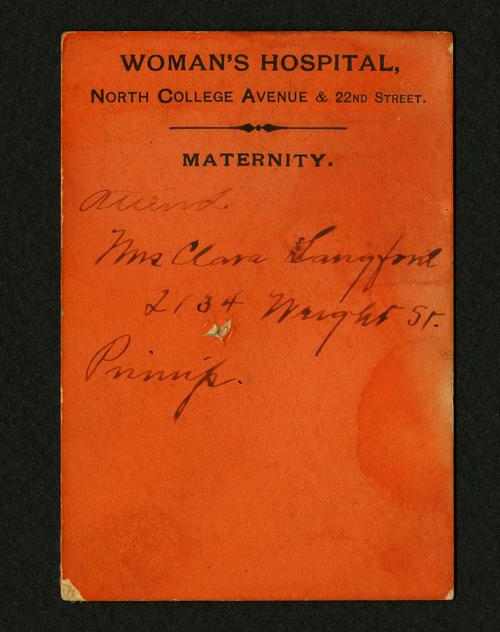 WOMAN'S HOSPITAL,
NORTH COLLEGE AVENUE & 22ND STREET.
MATERNITY.
Attend
Mrs Clara Langford
2134 Wright St.
Primip.